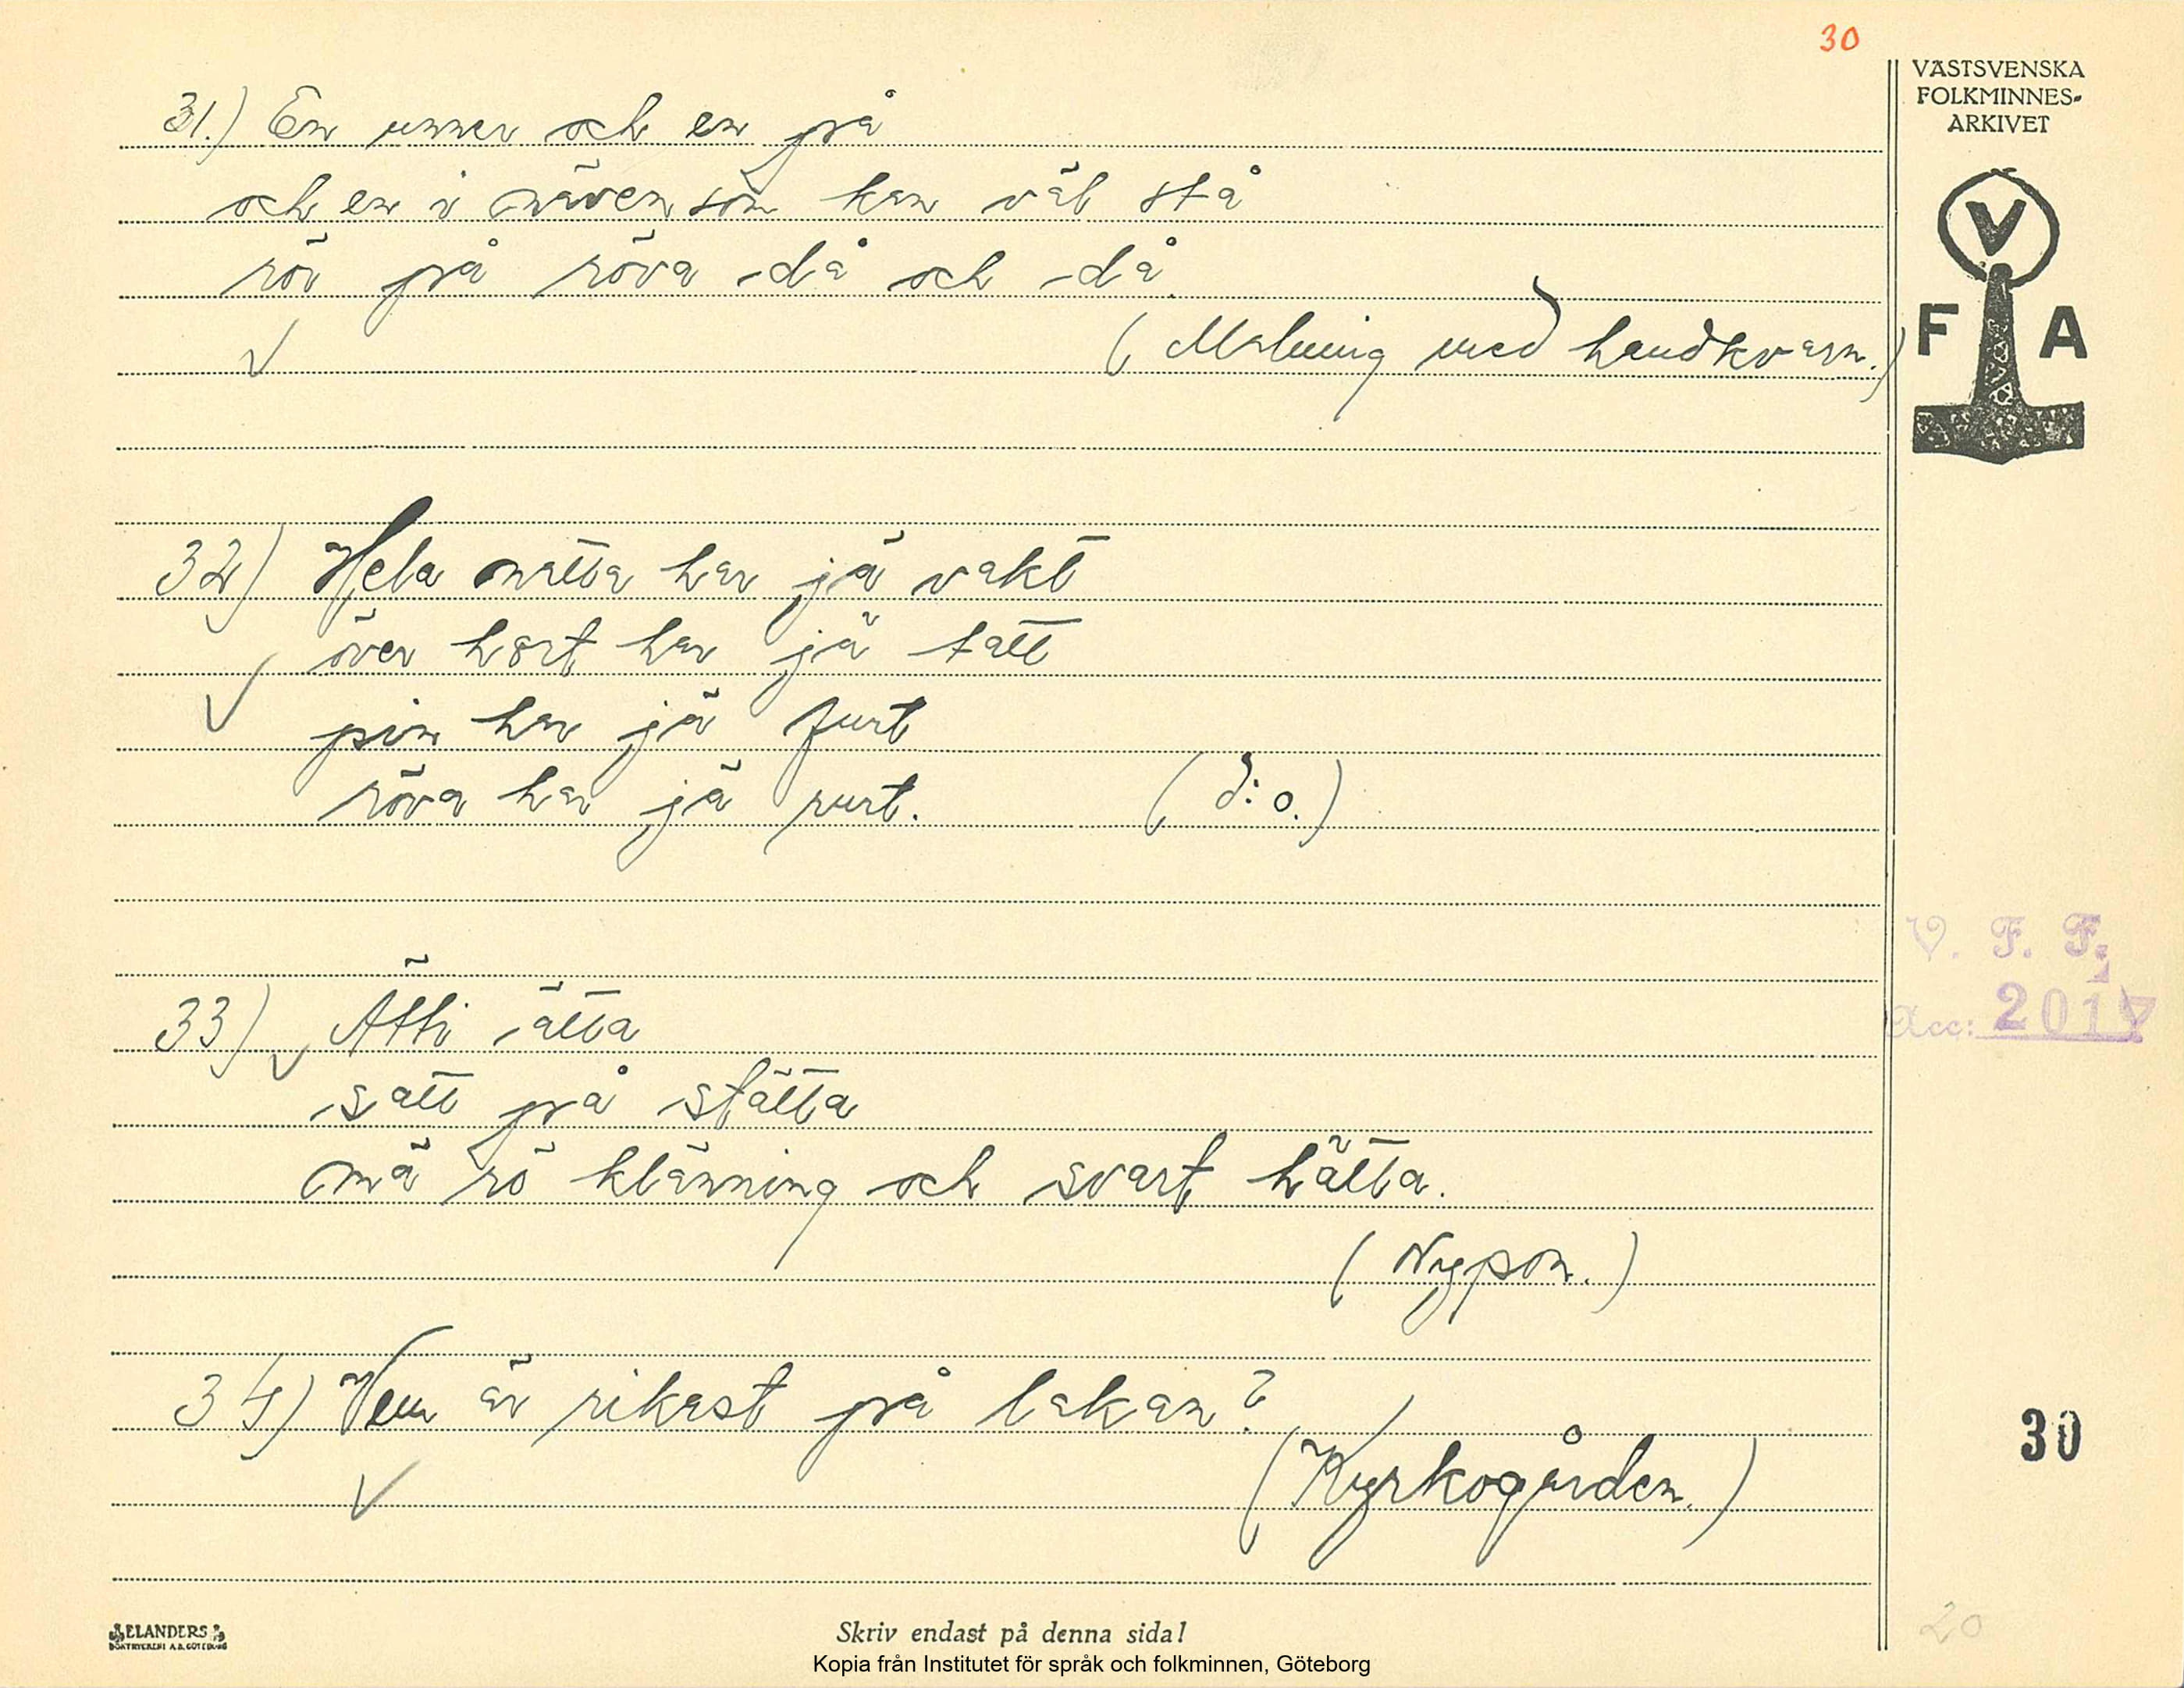 30
VÄSTSVENSKA
FOLKMINNES-
ARKIVET
V
F A
31.) En unner och en på
och en i näven som kan väl stå
rör på röva då och då.
(Malning med handkvarn.)
32) Hela natta har jä vakt
över hårt har jä tatt
pin har jä furt
röva har jä rurt.
(d:o.)
33) Ätti ätta
satt på stätta
mä rö klänning och svart hätta.
(Nypon.)
34) Vem är rikast på lakan?
(Kyrkogården.)
V. F. F.
Acc: 2017
30
20
ELANDERS
BOKTRYCKERI A.B. GÖTEBORG
Skriv endast på denna sida!
Kopia från Institutet för språk och folkminnen, Göteborg